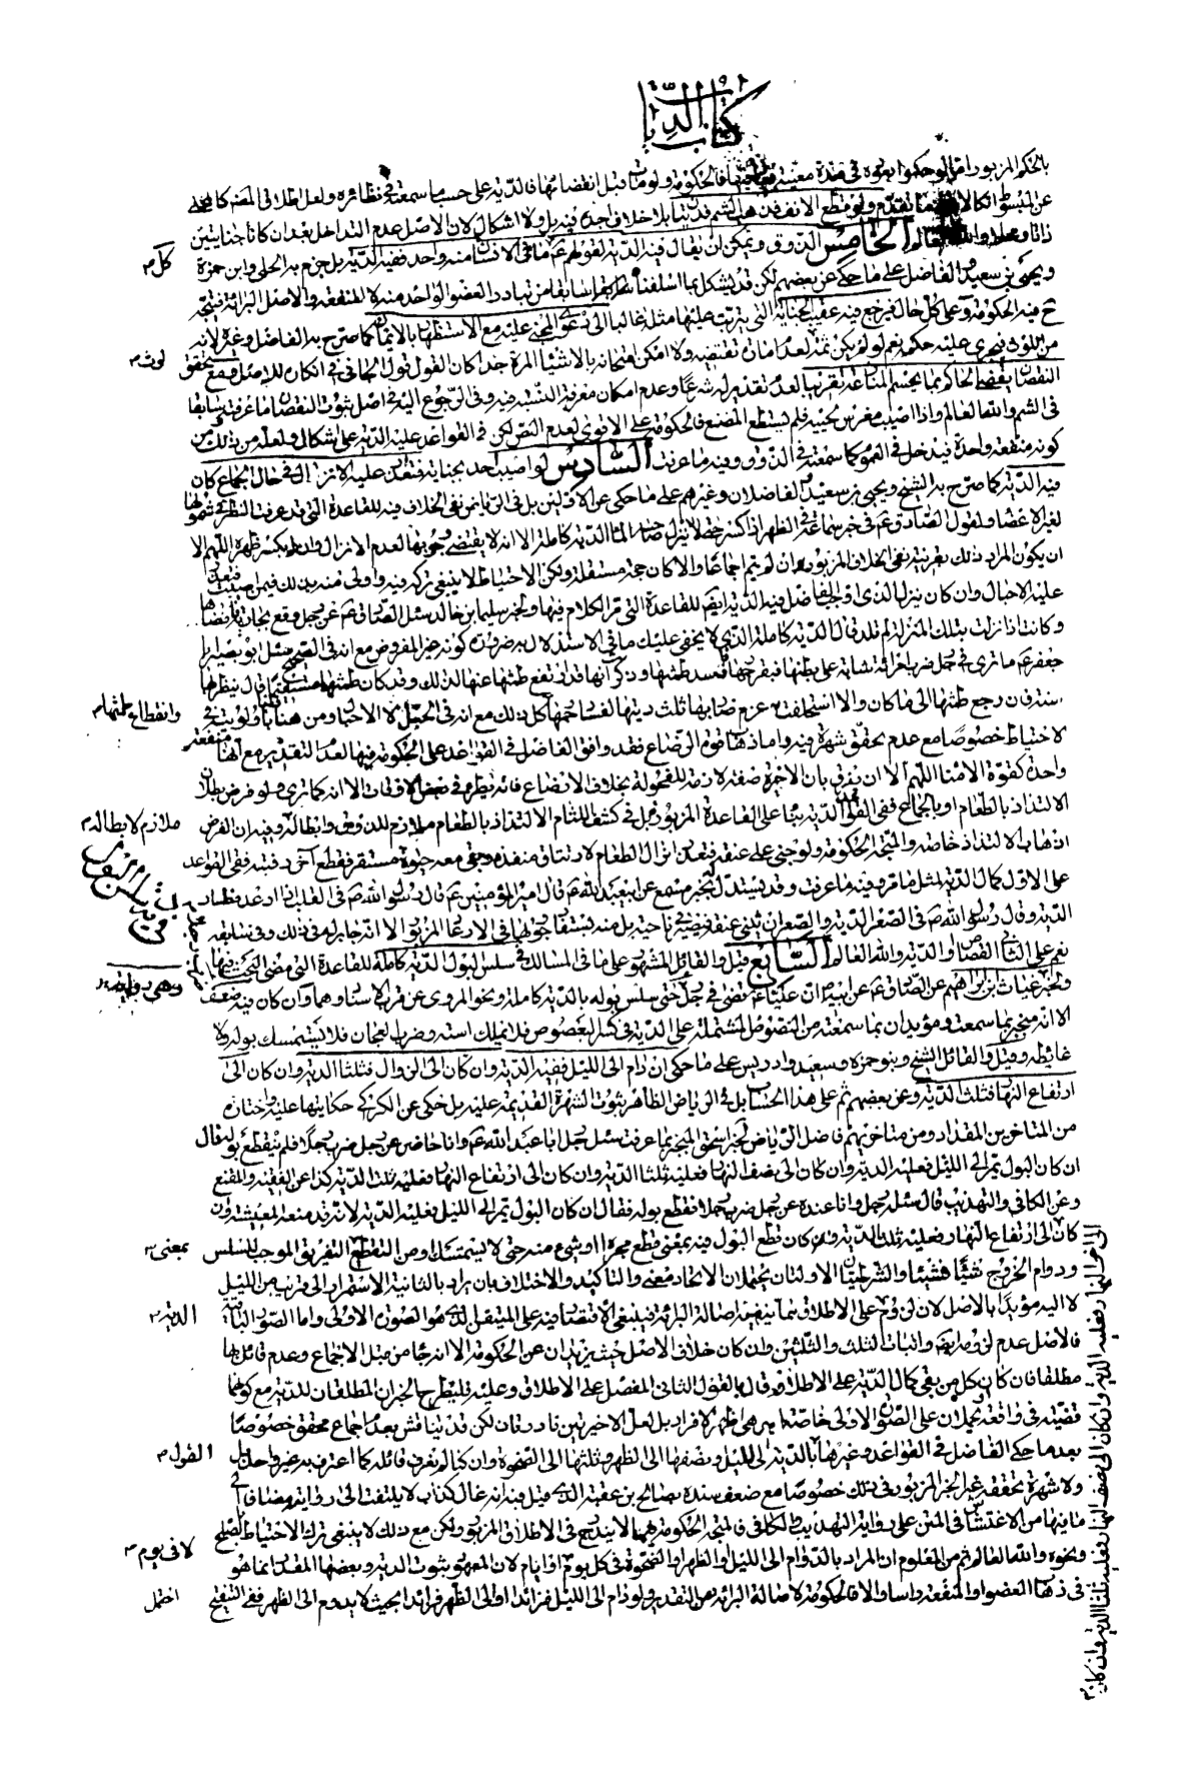 كتاب الديات
بالحكم المزبور امر لو حكموا بعوده في مدة معينة فالحكومة ولو مات قبل انقضائها فالدية على حسب ما سمعته في نظائره ولعل اطلاق
عن المبسوط تقدم ولو قطع الانف فذهب الشم فديتان بلا خلاف اجده فيه بل ولا اشكال لان الاصل عدم التداخل بعد ان كانتا جنايتين
ذاتا ومحلا والله العالم الخامس الذوق ويمكن ان يقال فيه الدية لقولهم ع ما في الانسان منه واحد ففيه الدية بل جزم به الحلي وابن حمزة
ويحيى بن سعيد والفاضل على ما حكي عن بعضهم لكن قد يشكل بما اسلفناه سابقا من تبادر العضو الواحد منه لا المنفعة والاصل البرائة فيتجه
ح فيه الحكومة وعلى كل حال فيرجع فيه عقيب الجناية التي يترتب عليها مثله غالبا الى دعوى المجني عليه مع الاستظهار بالايمان كما صرح به الفاضل وغيره لانه
من اللوث فيجري عليه حكمه نعم لو لم يكن ثمة لعد امارات تقتضيه ولا امكن امتحانه بالاشياء المرة جدا كان القول قول الجاني في انكاره للاصل ومع تحقق
النقصان يقضي الحاكم بما يحسم المنازعة تقريبا لعدم تقديره له شرعا وعدم امكان معرفة النسبة فيه وفي الرجوع اليه في اصل ثبوت النقصان ما عرفته سابقا
في الشم والله العالم واذا اصيب مغرس لحييه فلم يستطع المضغ فالحكومة على الاقوى لعدم النص لكن في القواعد عليه الدية على اشكال ولعله من ذلك ومن
كونه منفعة واحدة فيدخل في العموم كما سمعته في الذوق وفيه ما عرفت السادس لو اصيب احد بجناية فتعذر عليه الانزال في حال الجماع كان
فيه الدية كما صرح به الشيخ ويحيى بن سعيد والفاضلان وغيرهم على ما حكي عن الاولين بل في الرياض نفى الخلاف فيه للقاعدة التي قد عرفت النظر في شمولها
لغير الاعضاء ولقول الصادق ع في خبر سماعة في الظهر اذا كسر حتى لا ينزل صاحبه الماء الدية كاملة الا انه لا يقتضي وجوبها لعدم الانزال وان لم يكسر ظهره اللهم الا
ان يكون المراد ذلك بقرينة نفي الخلاف المزبور وان لم يتم اجماعا والا كان حجة مستقلة ولكن الاحتياط لا ينبغي تركه فيه واولى منه بذلك فيمن اصيب فتعذر
عليه الاحبال وان كان ينزل الذي اوجب الفاضل فيه الدية ايضا للقاعدة التي مر الكلام فيها ولخبر سليمان بن خالد سئل الصادق ع عن رجل وقع بجارية فافضاها
وكانت اذا نزلت بتلك المنزلة لم تلد قال الدية كاملة الذي لا يخفى عليك ما في الاستدلال به ضرورة كونه غير المفروض مع انه في الصحيح سئل ابو بصير ابا
جعفر ع ما ترى في رجل ضرب امرأة شابة على بطنها فعقر رحمها فافسد طمثها وذكرت انها قد ارتفع طمثها عنها لذلك وقد كان طمثها مستقيما قال ينظر بها
سنة فان رجع طمثها الى ما كان والا استحلفت وغرم ضاربها ثلث ديتها لفساد رحمها كل ذلك مع انه في الحبل لا الاحبال ومن هنا بان لك وجه
الاحتياط خصوصا مع عدم تحقق شهرة فيه واما ذهاب قوة الرضاع فقد وافق الفاضل في القواعد على الحكومة فيها لعدم التقدير مع انها منفعة
واحدة كقوة الامناء اللهم الا ان يفرق بان الاخيرة صفة لازمة للفحولة بخلاف الارضاع فانه يطرء في بعض الاوقات الا انه كما ترى ولو فرض بطلان
الالتذاذ بالطعام او بالجماع ففي القواعد الدية بناء على القاعدة المزبورة قيل في كشف اللثام الالتذاذ بالطعام ملازم للذوق وابطاله وفيه ان الفرض
اذهاب الالتذاذ خاصة والمتجه الحكومة ولو جنى على عنقه فتعذر انزال الطعام لارتتاق منفذه وبقي معه حيوة مستقرة فقطع آخر رقبته ففي القواعد
على الاول كمال الدية لمثل ما مر وفيه ما عرفت وقد يستدل بخبر مسمع عن ابيعبد الله ع قال امير المؤمنين ع قال رسول الله ص في القلب اذا ارعد فطار
الدية وقال رسول الله ص في الصعر الدية والصعر ان يثنى عنقه فيصير في ناحية
نعم على الثاني القصاص او الدية والله العالم السابع قيل والقائل المشهور على ما في المسالك في سلس البول الدية كاملة للقاعدة التي مضى البحث فيها
ولخبر غياث بن ابراهيم عن الصادق ع عن ابيه ان عليا ع قضى في رجل ضرب حتى سلس بوله بالدية كاملة ونحوه المروي عن قرب الاسناد وهما وان كان فيه ضعف
الا انه منجبر بما سمعت ومؤيدان بما سمعته من النصوص المشتملة على الدية في كسر البعصوص فلا يملك استه وضرب العجان فلا يستمسك بوله ولا
غائطه وقيل والقائل الشيخ وبنو حمزة وسعيد وادريس على ما حكي ان دام الى الليل ففيه الدية وان كان الى الزوال فثلثا الدية وان كان الى
ارتفاع النهار فثلث الدية وعن بعضهم ثم على هذا الحساب بل في الرياض الظاهر ثبوت الشهرة القديمة عليه بل حكي عن الكركي حكايتها عليه واختاره
من المتاخرين المقداد ومن متاخريهم فاضل الرياض لخبر اسحق المنجبر بما عرفت سئل رجل ابا عبد الله ع وانا حاضر عن رجل ضرب رجلا فلم ينقطع بوله قال
ان كان البول يمر الى الليل فعليه الدية وان كان الى نصف النهار فعليه ثلثا الدية وان كان الى ارتفاع النهار فعليه ثلث الدية كذا عن الفقيه والمقنع
وعن الكافي والتهذيب قال سئله رجل وانا عنده عن رجل ضرب رجلا فقطع بوله فقال ان كان البول يمر الى الليل فعليه الدية لانه قد منعه المعيشة وان
كان الى ارتفاع النهار فعليه ثلث الدية وان كان قطع البول فيه بمعنى قطع مجراه او شيء منه حتى لا يستمسك او من التقطع التفريق الموجب للسلس
ودوام الخروج شيئا فشيئا والشرطيتان الاولتان يحتملان الاتحاد معنى والتاكيد والاختلاف بان يراد بالثانية الاستمرار الى قريب من الليل
لا اليه مؤيدا بالاصل لان لزوم على الاطلاق بما ينفيه اصالة البرائة فينبغي الاقتصار فيه على المتيقن الذي هو الصورة الاولى واما الصور الباقية
فالاصل عدم لزومه واثبات الثلث والثلثين وان كان خلاف الاصل حيث يزيدان عن الحكومة الا انه جاء من قبل الاجماع وعدم قائل بها
مطلقا فان كان كل من نفى كمال الدية على الاطلاق قال بالقول الثاني المفصل على الاطلاق وعليه فليطرح الخبران المطلقان للدية مع كونهما
قضية في واقعة يحملان على الصورة الاولى خاصة اظهر الافراد بل لعل الاخيرتين نادرتان لكن قد يناقش بعدم اجماع محقق خصوصا
بعد ما حكي الفاضل في القواعد وغيرها بالدية الى الليل ونصفها الى الظهر وثلثها الى الضحوة وان كنا لم نعرف قائله كما اعترف به غير واحد بل
ولا شهرة محققة تجبر الخبر المزبور في ذلك خصوصا مع ضعف سنده بصالح بن عقبة الذي قيل فيه انه غال كذاب لا يلتفت الى روايته مضافا الى
ما فيها من الاغتشاش في المتن على رواية التهذيب والكافي فالمتجه الحكومة فيما لا يندرج في الاطلاق المزبور ولكن مع ذلك لا ينبغي ترك الاحتياط بالصلح
ونحوه والله العالم ثم من المعلوم ان المراد بالدوام الى الليل او الظهر او الضحوة في كل يوم او ايام لان المعهود ثبوت الدية وبعضها المقدر انما هو
في ذهاب العضو او المنفعة راسا والا فالحكومة لاصالة البرائة من التقدير ولو دام الى الليل فزائدا او الى الظهر فزائدا بحيث لا يدوم الى الظهر ففي التنقيح
كل م
لوث م
وانقطاع طمثها م
ملازم لابطاله م
في دية سلس البول
وهي
بمعنى م
الدية م
القول م
لا في يوم م
احتمل
الى آخر النهار فعليه الدية وان كان الى نصف النهار فعليه ثلثا الدية وان كان م